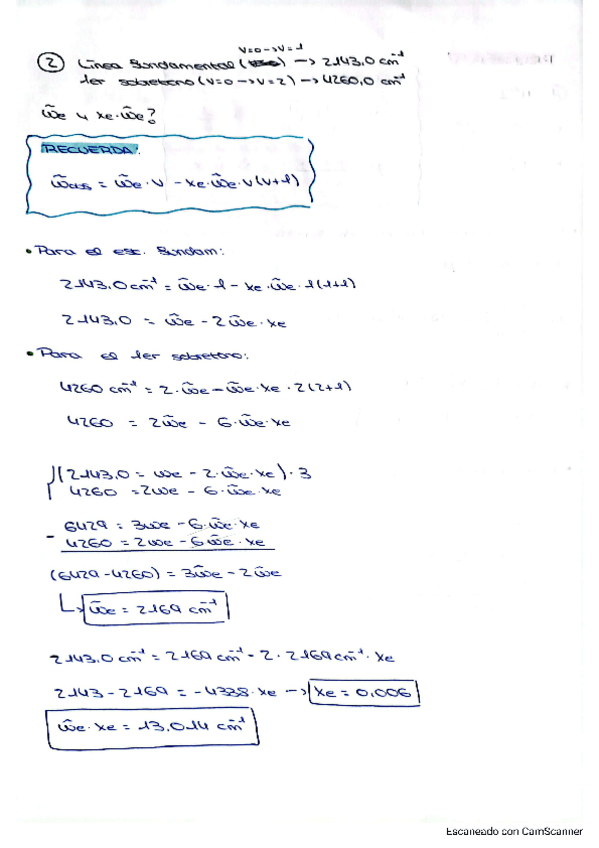 v=0→v=1
② Línea fundamental ( ) → 2143,0 cm⁻¹
1er sobretono (v=0→v=2) → 4260,0 cm⁻¹
ω̃e y xe·ω̃e?
RECUERDA:
ω̃as = ω̃e·v - xe·ω̃e·v(v+1)
• Para el esc. fundam:
2143,0 cm⁻¹ = ω̃e·1 - xe·ω̃e·1(1+1)
2143,0 = ω̃e - 2ω̃e·xe
• Para el 1er sobretono:
4260 cm⁻¹ = 2·ω̃e - ω̃e·xe·2(2+1)
4260 = 2ω̃e - 6·ω̃e·xe
(2143,0 = ωe - 2·ω̃e·xe)·3
4260 = 2ωe - 6·ω̃e·xe
6429 = 3ωe - 6·ω̃e·xe
- 4260 = 2ωe - 6ω̃e·xe
(6429-4260) = 3ω̃e - 2ω̃e
↳ ω̃e = 2169 cm⁻¹
2143,0 cm⁻¹ = 2169 cm⁻¹ - 2·2169 cm⁻¹·xe
2143 - 2169 = -4338·xe → xe = 0,006
ω̃e·xe = 13,014 cm⁻¹
Escaneado con CamScanner